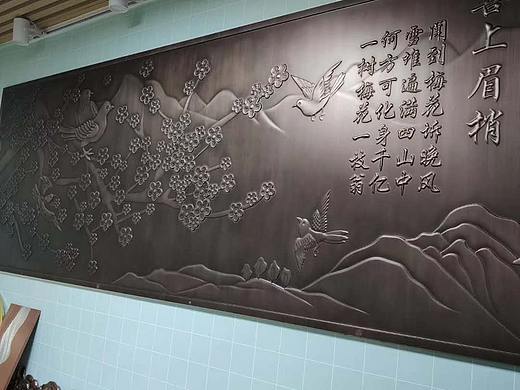 喜上眉梢
聞到梅花拆晚风
雪堆遍满四山中
何方可化身千亿
一树梅花一放翁